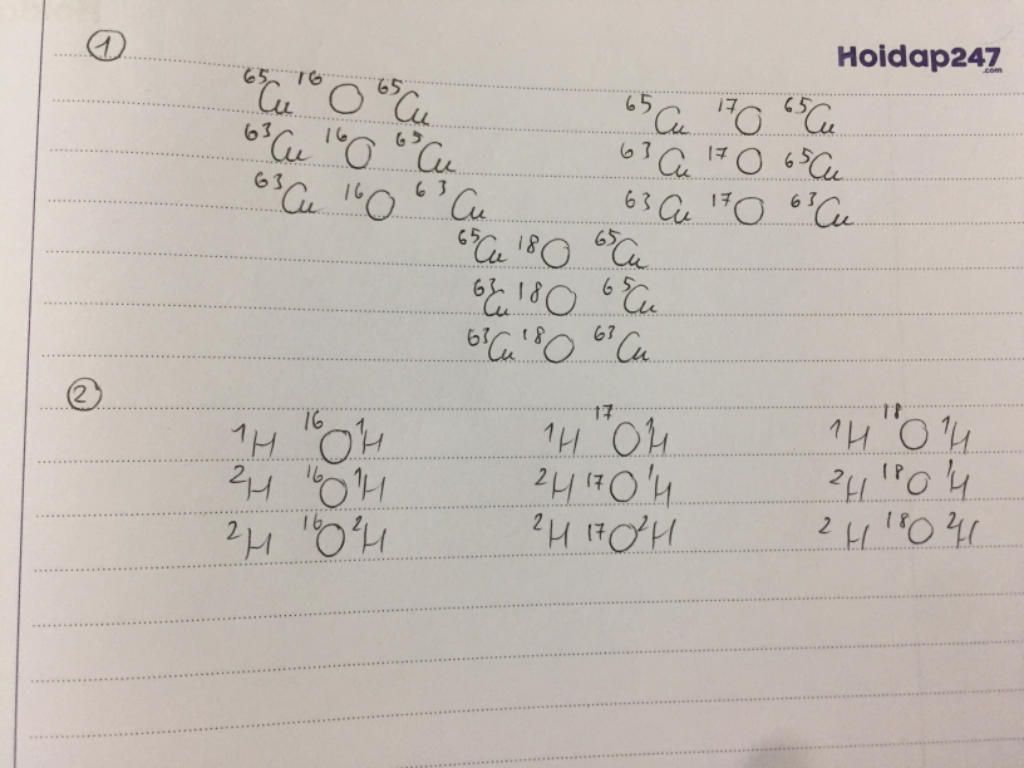 ① Hoidap247
.com
⁶⁵Cu ¹⁶O ⁶⁵Cu
⁶³Cu ¹⁶O ⁶⁵Cu
⁶³Cu ¹⁶O ⁶³Cu
⁶⁵Cu ¹⁷O ⁶⁵Cu
⁶³Cu ¹⁷O ⁶⁵Cu
⁶³Cu ¹⁷O ⁶³Cu
⁶⁵Cu ¹⁸O ⁶⁵Cu
⁶³Cu ¹⁸O ⁶⁵Cu
⁶³Cu ¹⁸O ⁶³Cu
②
¹H ¹⁶O ¹H ¹H ¹⁷O ¹H ¹H ¹⁸O ¹H
²H ¹⁶O ¹H ²H ¹⁷O ¹H ²H ¹⁸O ¹H
²H ¹⁶O ²H ²H ¹⁷O ²H ²H ¹⁸O ²H